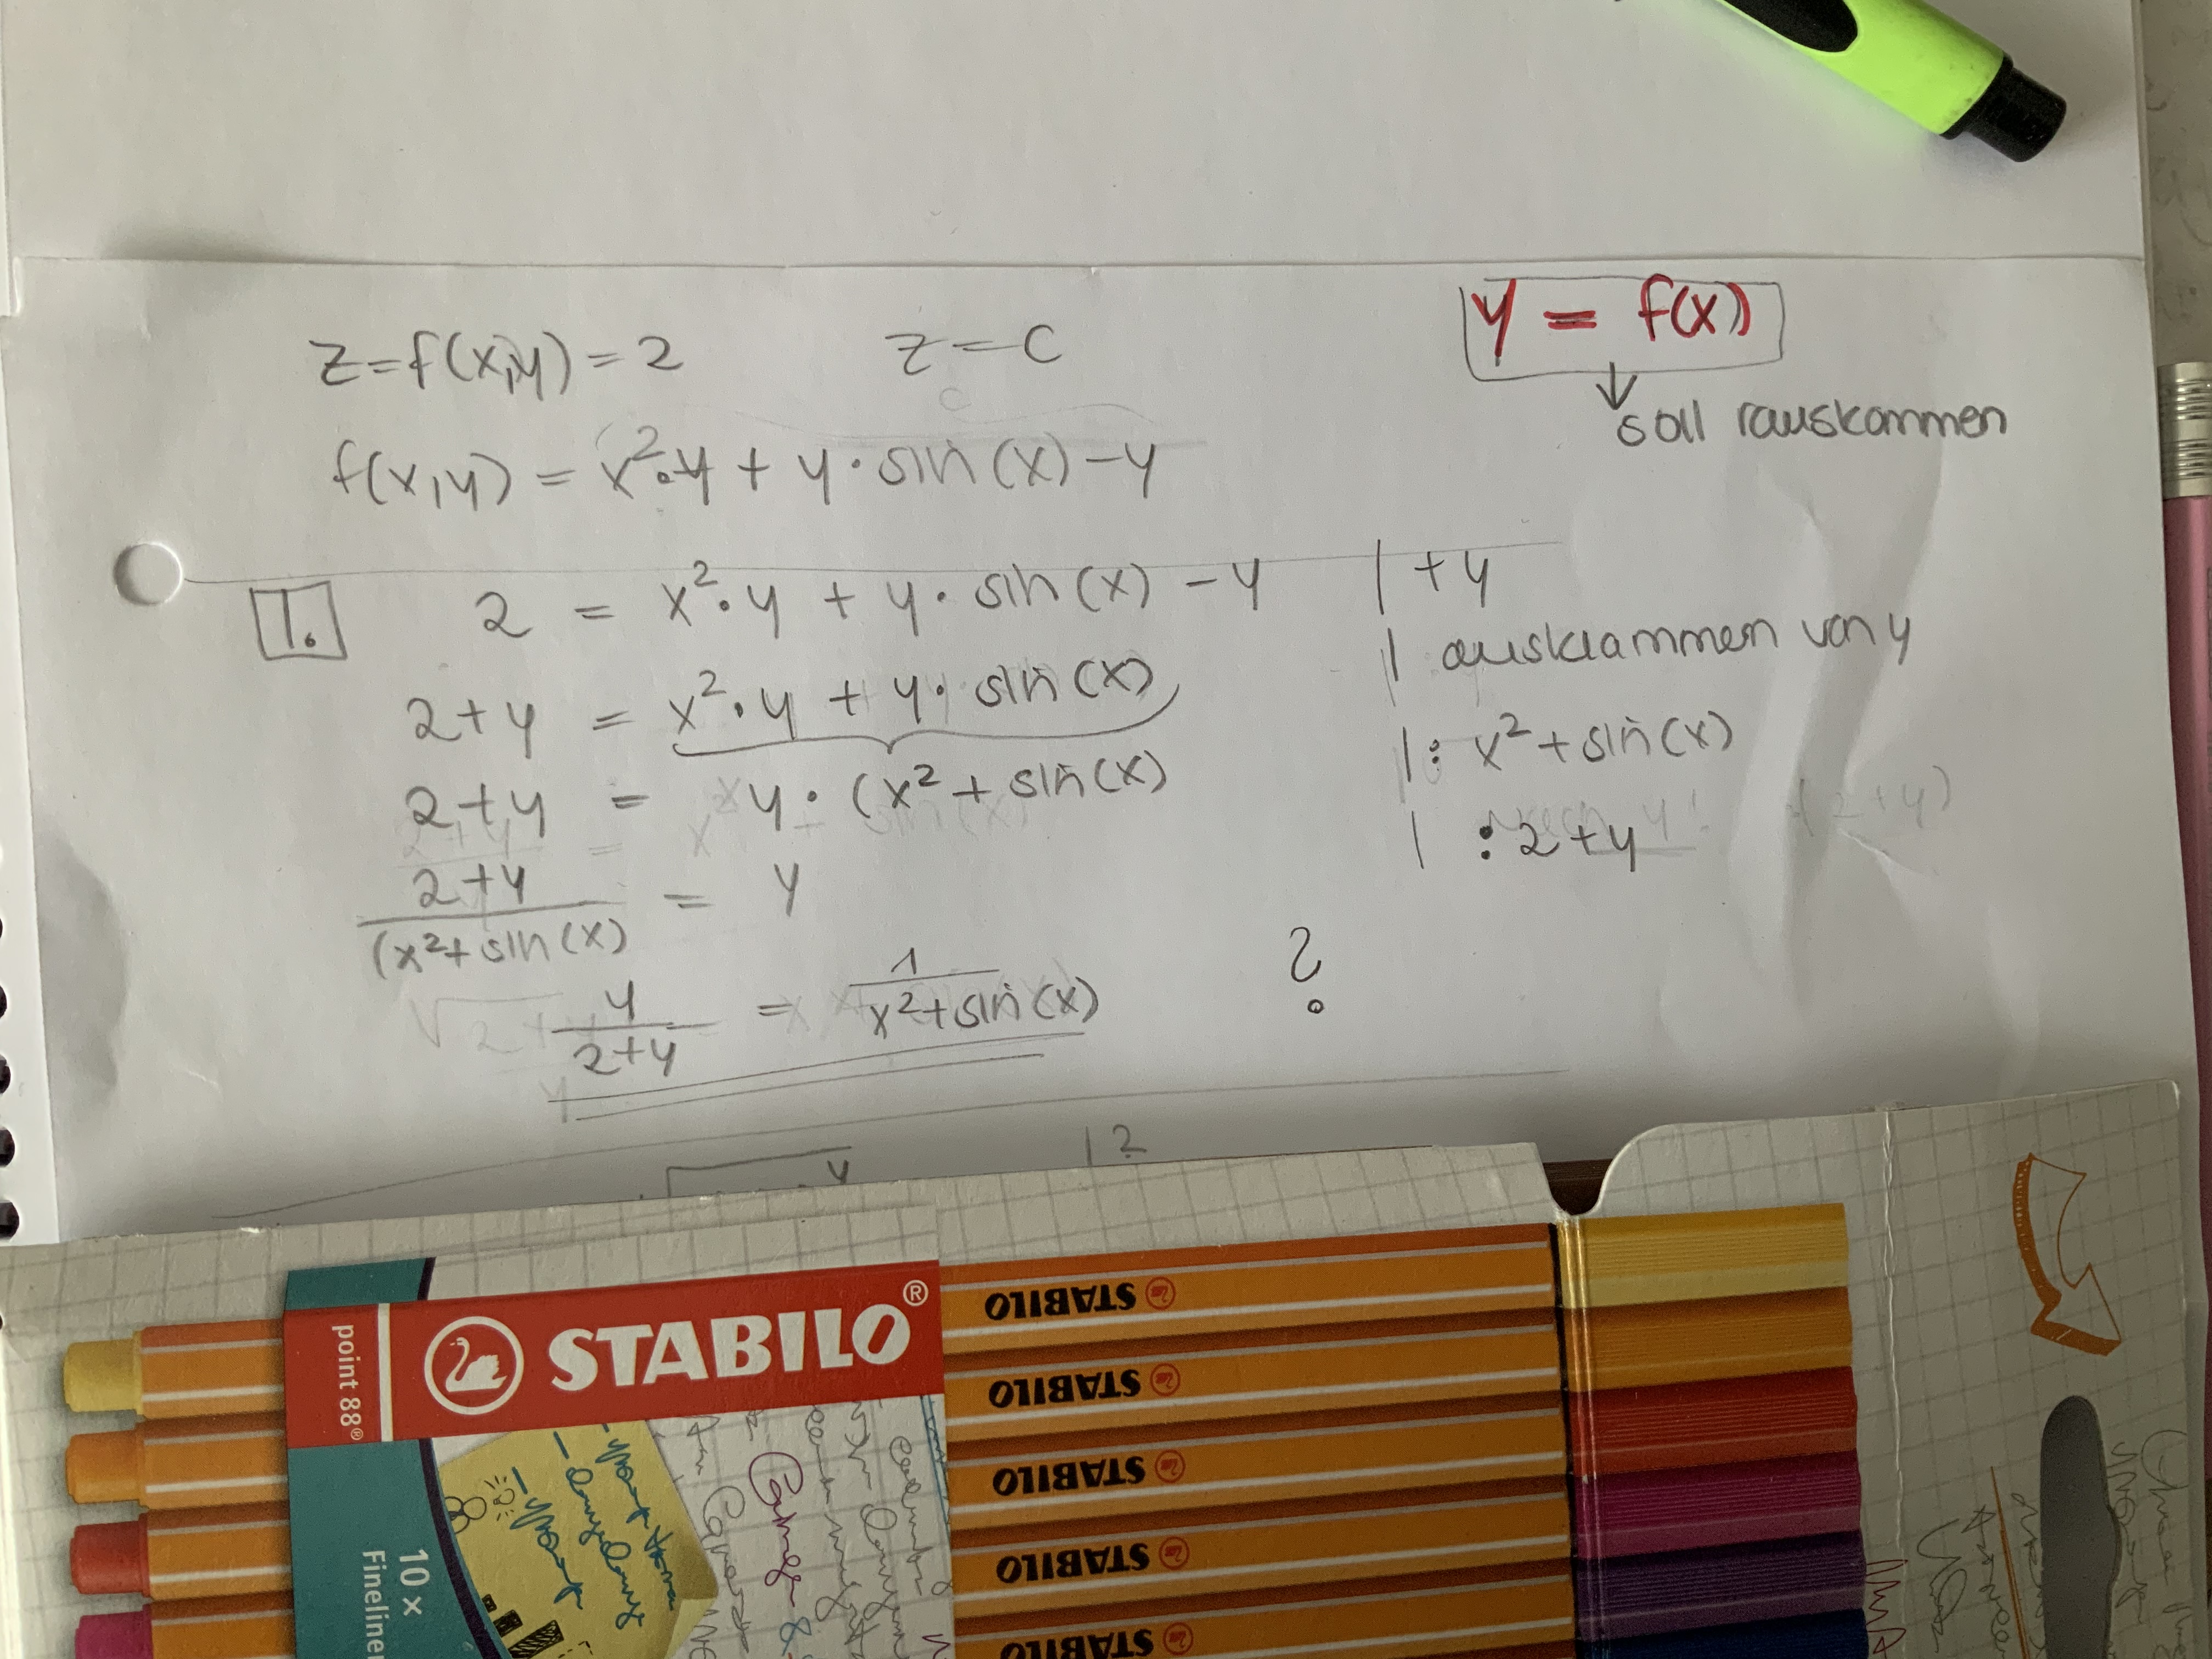 z=f(x,y)=2 z=c
y = f(x)
↓
soll rauskommen
f(x,y) = x²·y + y·sin(x)-y
1. 2 = x²·y + y·sin(x) -y | +y
2+y = x²·y + y·sin(x) | ausklammen von y
2+y = y·(x²+sin(x) |: x²+sin(x)
2+y/(x²+sin(x) = y | :2+y
y/2+y = 1/x²+sin(x) ?
y |?
STABILO®
point 88®
10x
Fineliner
STABILO
STABILO
STABILO
STABILO
STABILO